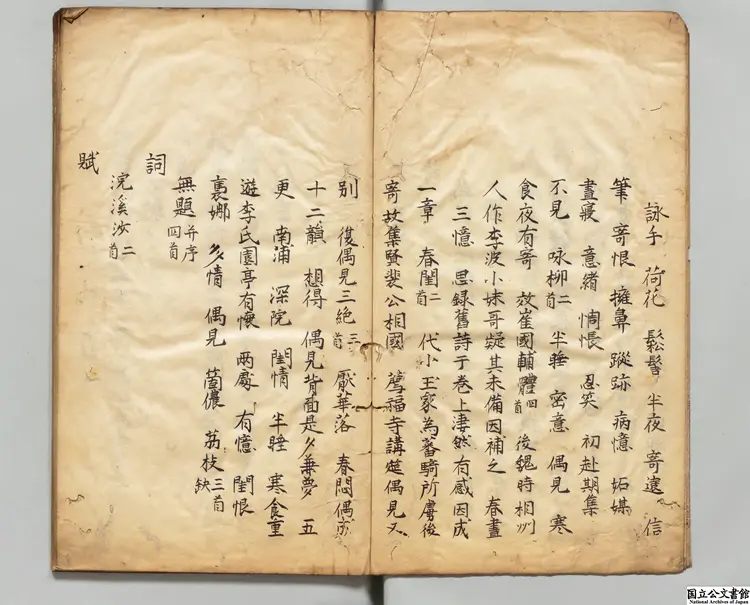 詠手 荷花 鬆髻 半夜 寄遠 信
筆 寄恨 擁鼻 蹤跡 病憶 妬媒
晝寢 意緒 惆悵 忍笑 初赴期集
不見 咏柳二首 半睡 密意 偶見 寒
食夜有寄 效崔國輔體四首 後魏時相州
人作李波小妹哥疑其未備因補之 春晝
三憶 思録舊詩于卷上淒然有感因成
一章 春閨二首 代小玉家為蕃騎所虜後
寄故集賢裴公相國 薦福寺講筵偶見又
別 復偶見三絶三首 厭華落 春悶偶成
十二韻 想得 偶見背面是夕兼夢 五
更 南浦 深院 閨情 半睡 寒食重
遊李氏園亭有懷 兩處 有憶 閨恨
裊娜 多情 偶見 箇儂 荔枝三首缺
無題并序四首
詞
浣溪沙二首
賦
国立公文書館
National Archives of Japan